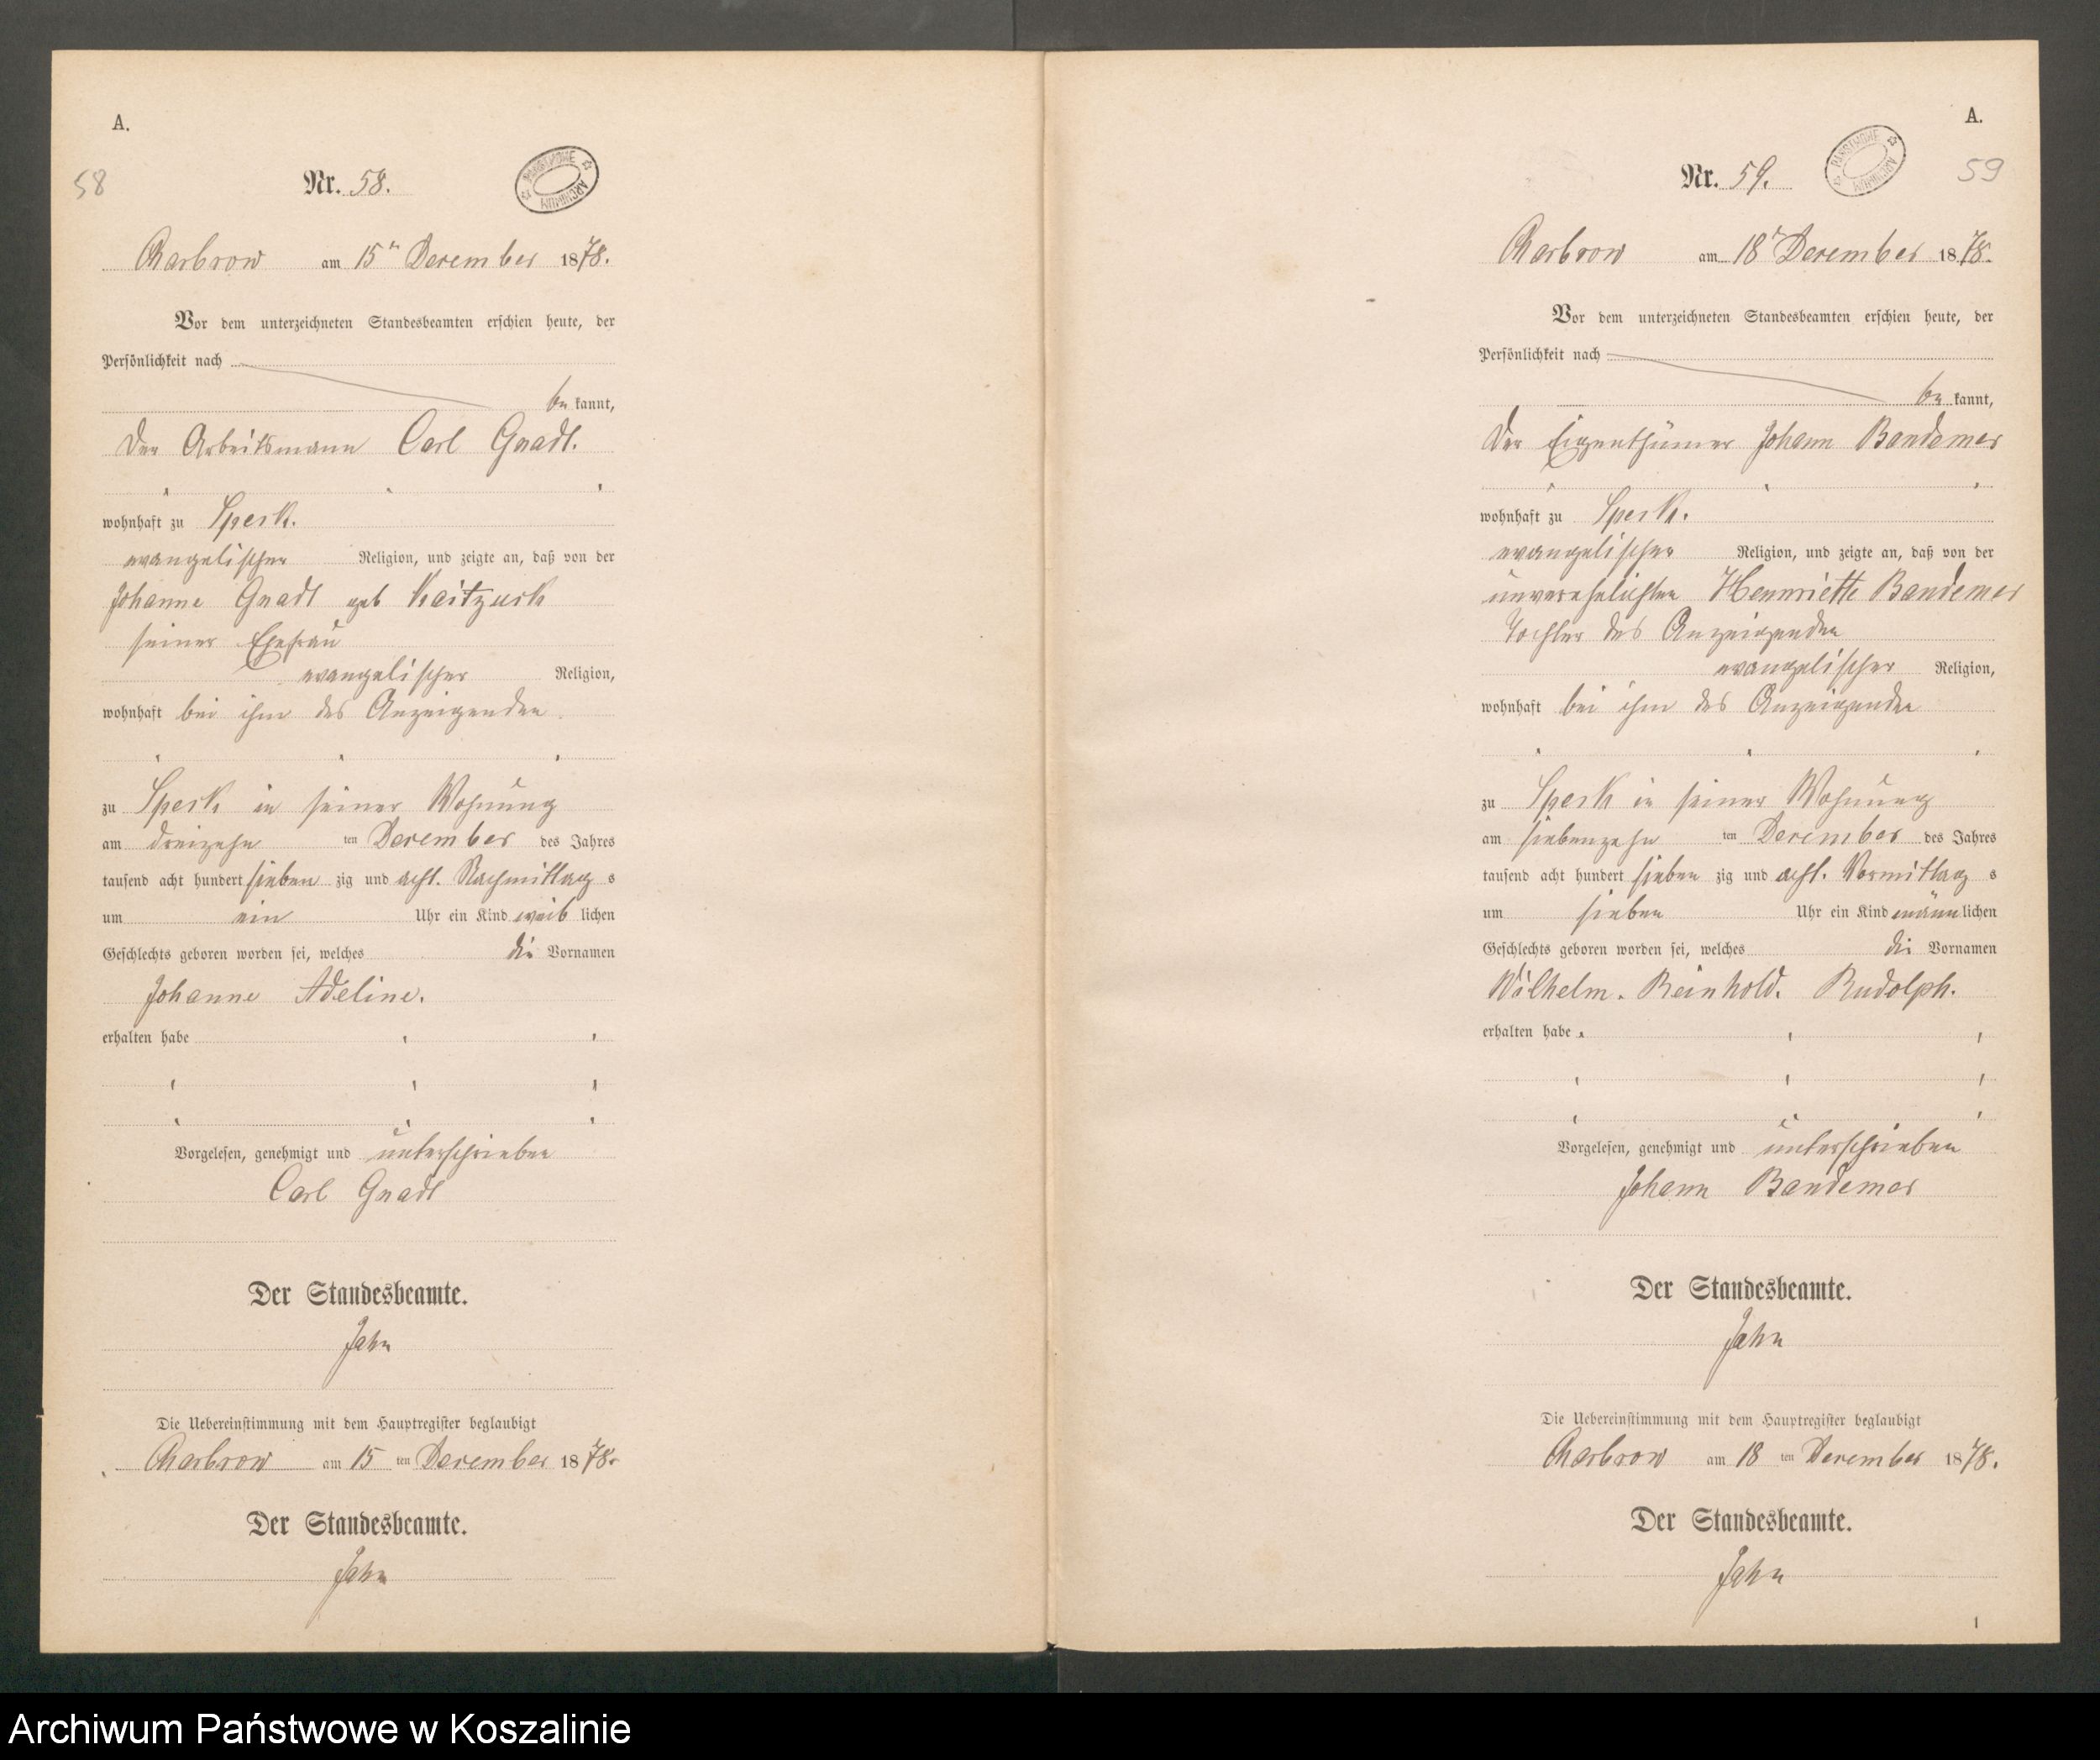 A.
58
Nr. 58.
PAŃSTWOWE ARCHIWUM
Charbrow am 15ⁿ December 1878.
Vor dem unterzeichneten Standesbeamten erschien heute, der
Persönlichkeit nach
be kannt,
der Arbeitsmann Carl Gnadt.
wohnhaft zu Speck.
evangelischer Religion, und zeigte an, daß von der
Johanne Gnadt geb Kaitzuck
seiner Ehefrau
evangelischer Religion,
wohnhaft bei ihm des Anzeigenden
zu Speck in seiner Wohnung
am dreizehn ten December des Jahres
tausend acht hundert sieben zig und acht. Nachmittag s
um ein Uhr ein Kind weib lichen
Geschlechts geboren worden sei, welches die Vornamen
Johanne Adeline.
erhalten habe
Vorgelesen, genehmigt und unterschrieben
Carl Gnadt
Der Standesbeamte.
Jahn
Die Uebereinstimmung mit dem Hauptregister beglaubigt
Charbrow am 15 ten December 1878.
Der Standesbeamte.
Jahn
A.
59
Nr. 59.
PAŃSTWOWE ARCHIWUM
Charbrow am 18ⁿ December 1878.
Vor dem unterzeichneten Standesbeamten erschien heute, der
Persönlichkeit nach
be kannt,
der Eigenthümer Johann Bandemer
wohnhaft zu Speck.
evangelischer Religion, und zeigte an, daß von der
unverehelichten Hennriette Bandemer
Tochter des Anzeigenden
evangelischer Religion,
wohnhaft bei ihm des Anzeigenden
zu Speck in seiner Wohnung
am siebenzehn ten December des Jahres
tausend acht hundert sieben zig und acht. Vormittag s
um sieben Uhr ein Kind männ lichen
Geschlechts geboren worden sei, welches die Vornamen
Wilhelm. Reinhold. Rudolph.
erhalten habe
Vorgelesen, genehmigt und unterschrieben
Johann Bandemer
Der Standesbeamte.
Jahn
Die Uebereinstimmung mit dem Hauptregister beglaubigt
Charbrow am 18 ten December 1878.
Der Standesbeamte.
Jahn
1
Archiwum Państwowe w Koszalinie